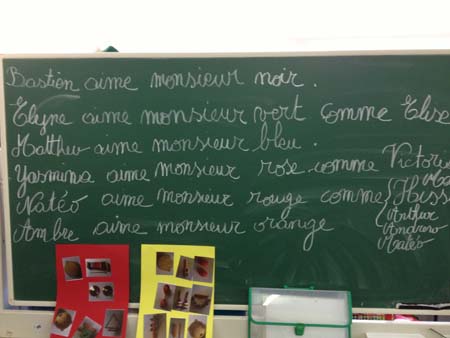 Bastien aime monsieur noir.
Elyne aime monsieur vert comme Elise
Matthieu aime monsieur bleu.
Yasmina aime monsieur rose comme Victoria
Natéo aime monsieur rouge comme {
Arthur
Andrew
Matéo
Ambre aime monsieur orange